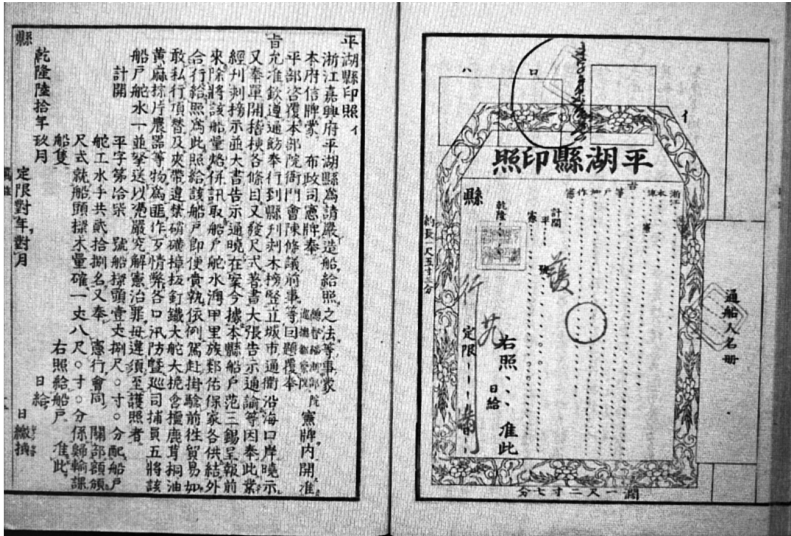 平湖縣印照
浙江
計開
平
號
護
右照
准此
乾隆
日給
縣
行
定限
通船人名册
約長一尺五寸三分
濶一尺二寸七分
ハ
ロ
イ
平湖縣印照イ
浙江嘉興府平湖縣爲請嚴造船給照之法等事蒙
本府信牌蒙 布政司憲牌奉 憲牌内開准
平部咨覆本部院衙門會陳條議前事等因題覆奉
旨允准欽遵通飭奉行到縣刋刺木榜竪立城市通衢沿海口岸曉示
又奉單開揸梗各條目又發尺式著書大張告示通諭等因奉此業
經刋刺榜示並大書告示通曉在案今據本縣船戶范三錫呈報前
來除將該船量烙併訊取船戶舵水澳甲里族鄰佑保家各供結外
合行給照爲此照給該船戶即便賫執依例駕赴掛驗前往貿易如
敢私行頂替及夾帶違禁硝磺樟板釘鐵大舵大桅含檀鹿茸桐油
黄麻棕片農器等物爲匪作歹情弊各口汛防暨巡司捕員五將該
船戶舵水一並拏送以憑嚴究解憲治罪毋違須至護照者
計開
平字第拾柒 號船標頭壹丈捌尺〇寸〇分配船戶
舵工水手共貳拾捌名又奉 憲行會同 關部額頒
尺式就船頭標木量確一丈八尺〇寸〇分係歸輸課
船隻 右照給船戶 准此
乾隆陸拾年玖月 日給
縣 定限對年對月 日繳換